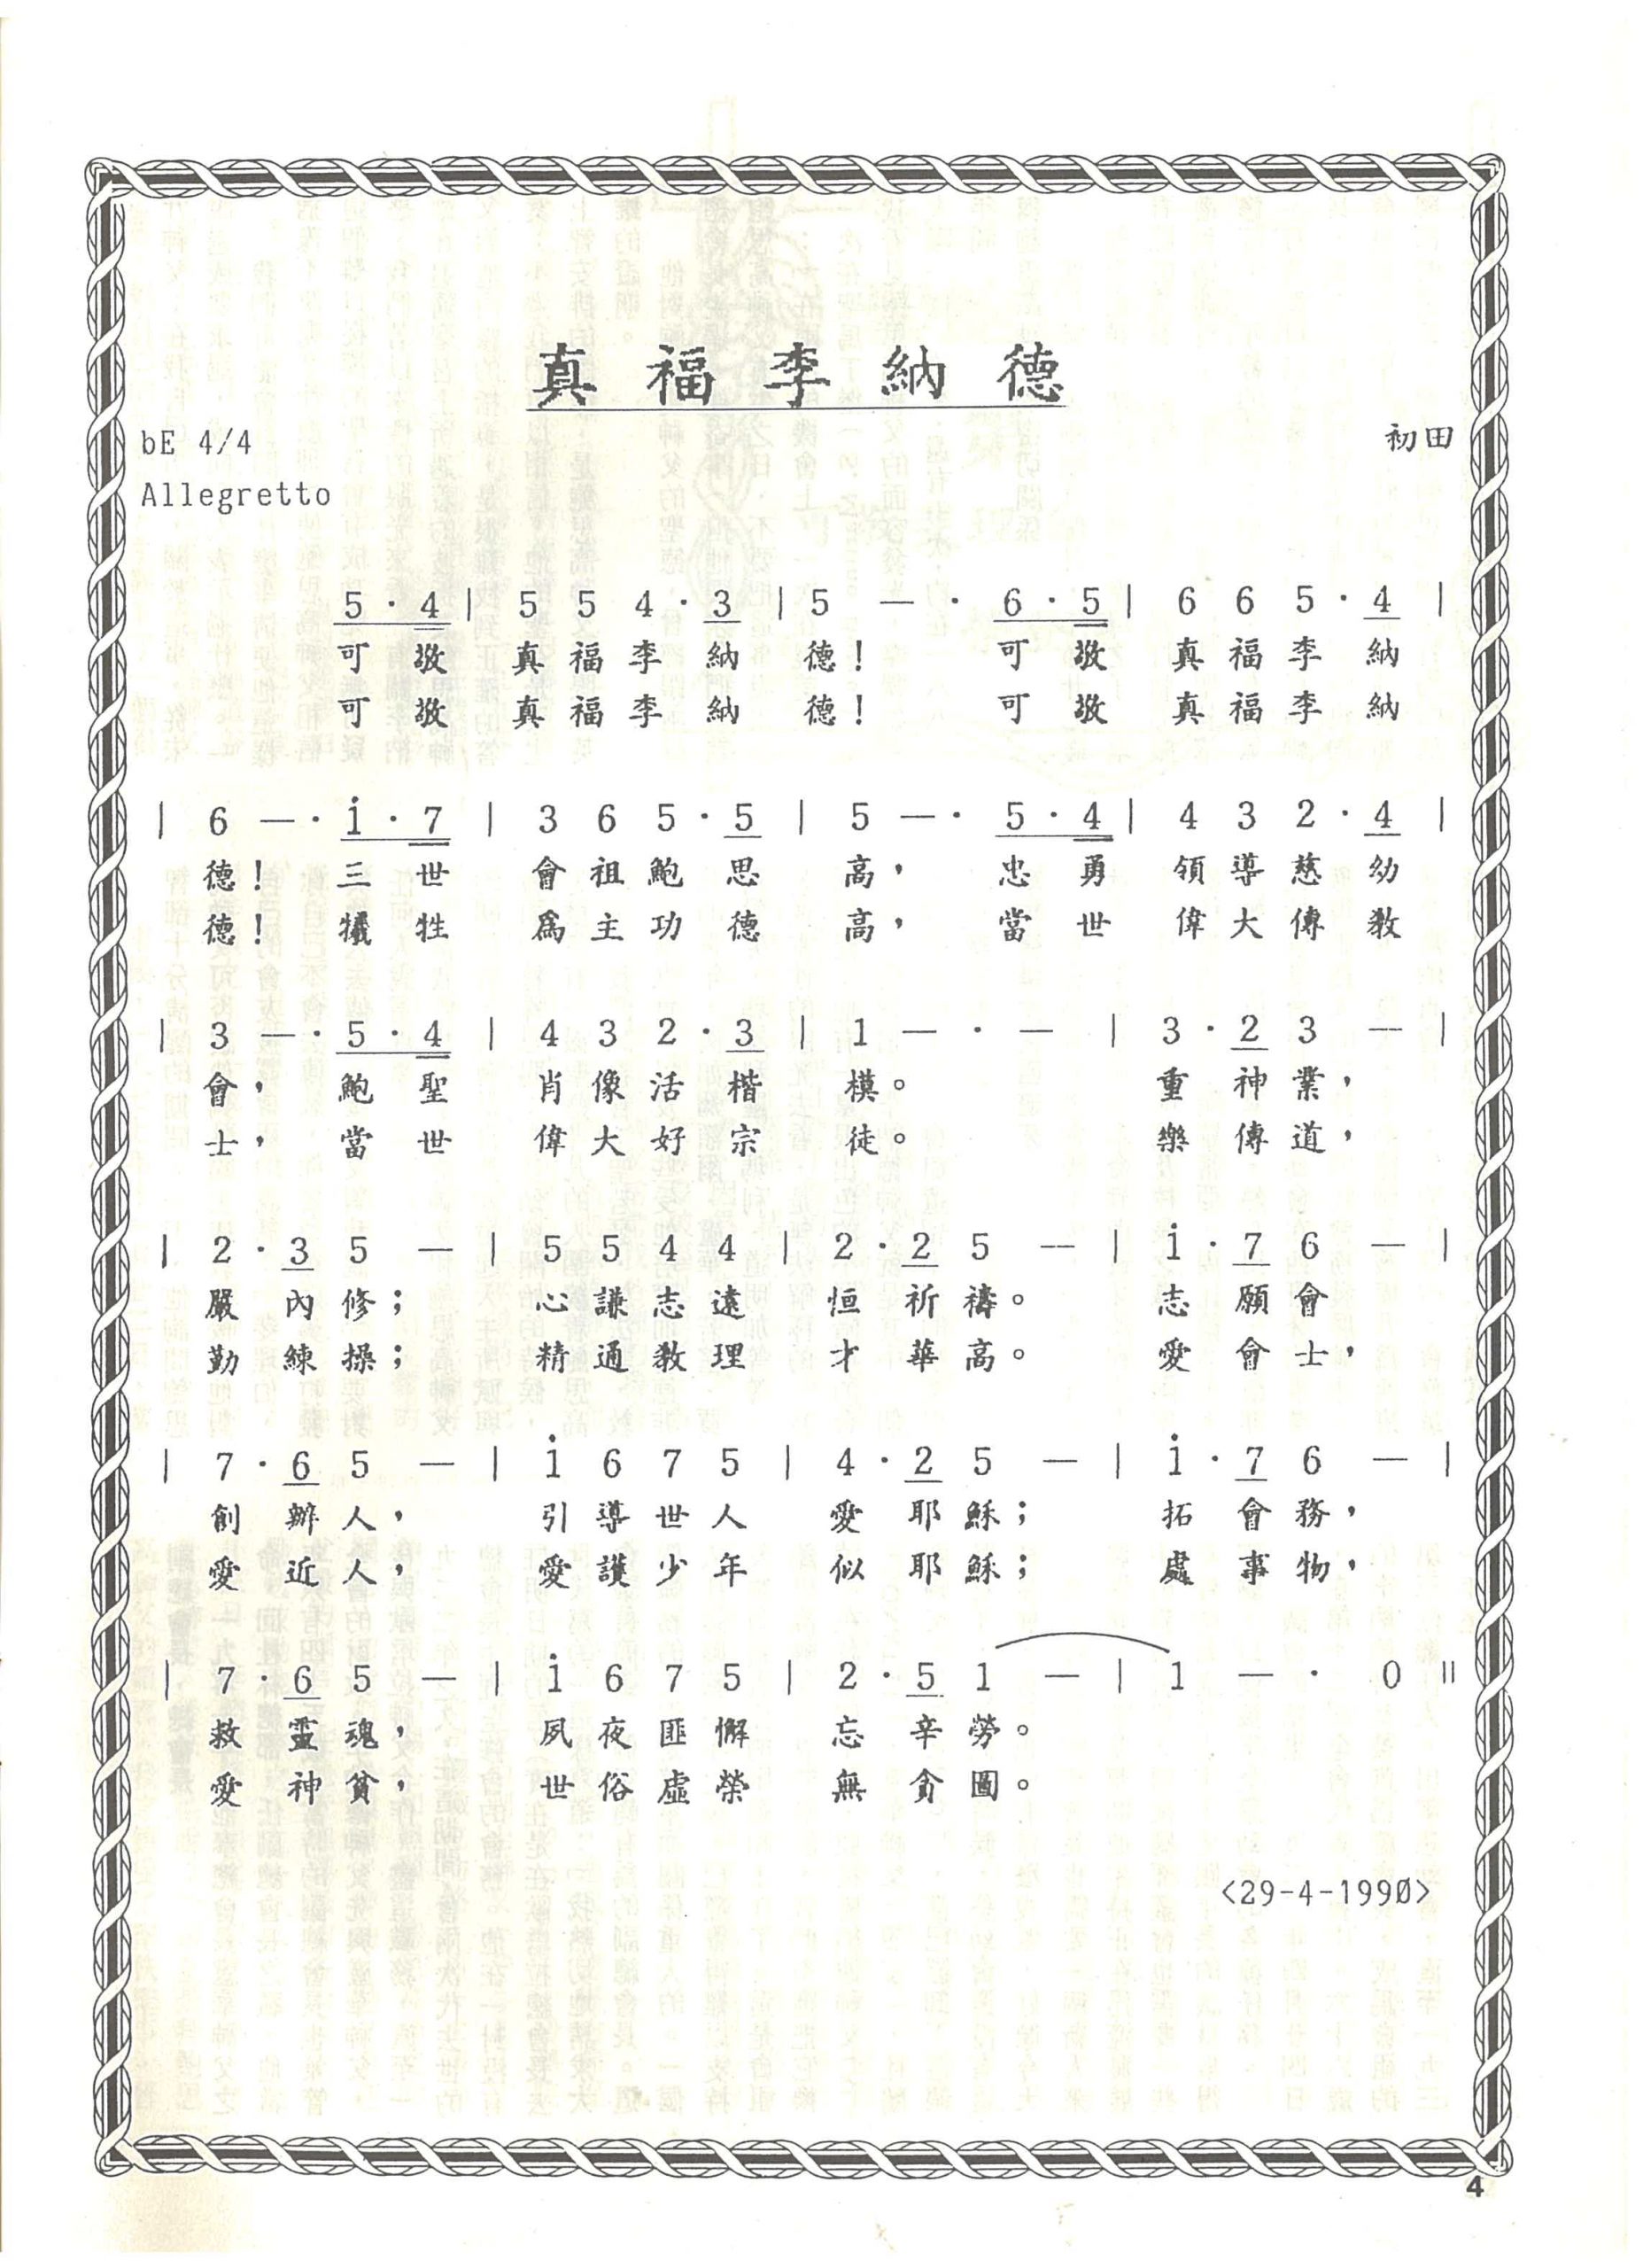 真福李納德
bE 4/4
初田
Allegretto
5 · 4 | 5 5 4 · 3 | 5 — · 6 · 5 | 6 6 5 · 4 |
可敬 真福李納 德! 可敬 真福李納
可敬 真福李納 德! 可敬 真福李納
| 6 — · i · 7 | 3 6 5 · 5 | 5 — · 5 · 4 | 4 3 2 · 4 |
德! 三世 會祖鮑思 高, 忠勇 領導慈幼
德! 犧牲 爲主功德 高, 當世 偉大傳教
| 3 — · 5 · 4 | 4 3 2 · 3 | 1 — · — | 3 · 2 3 — |
會, 鮑聖 肖像活楷 模。 重神業,
士, 當世 偉大好宗 徒。 樂傳道,
| 2 · 3 5 — | 5 5 4 4 | 2 · 2 5 — | i · 7 6 — |
嚴內修; 心謙志遠 恒祈禱。 志願會
勤練操; 精通教理 才華高。 愛會士,
| 7 · 6 5 — | i 6 7 5 | 4 · 2 5 — | i · 7 6 — |
創辦人, 引導世人 愛耶穌; 拓會務,
愛近人, 愛護少年 似耶穌; 處事物,
| 7 · 6 5 — | i 6 7 5 | 2 · 5 1 — | 1 — · 0 ||
救靈魂, 夙夜匪懈 忘辛勞。
愛神貧, 世俗虛榮 無貪圖。
<29-4-1990>
4